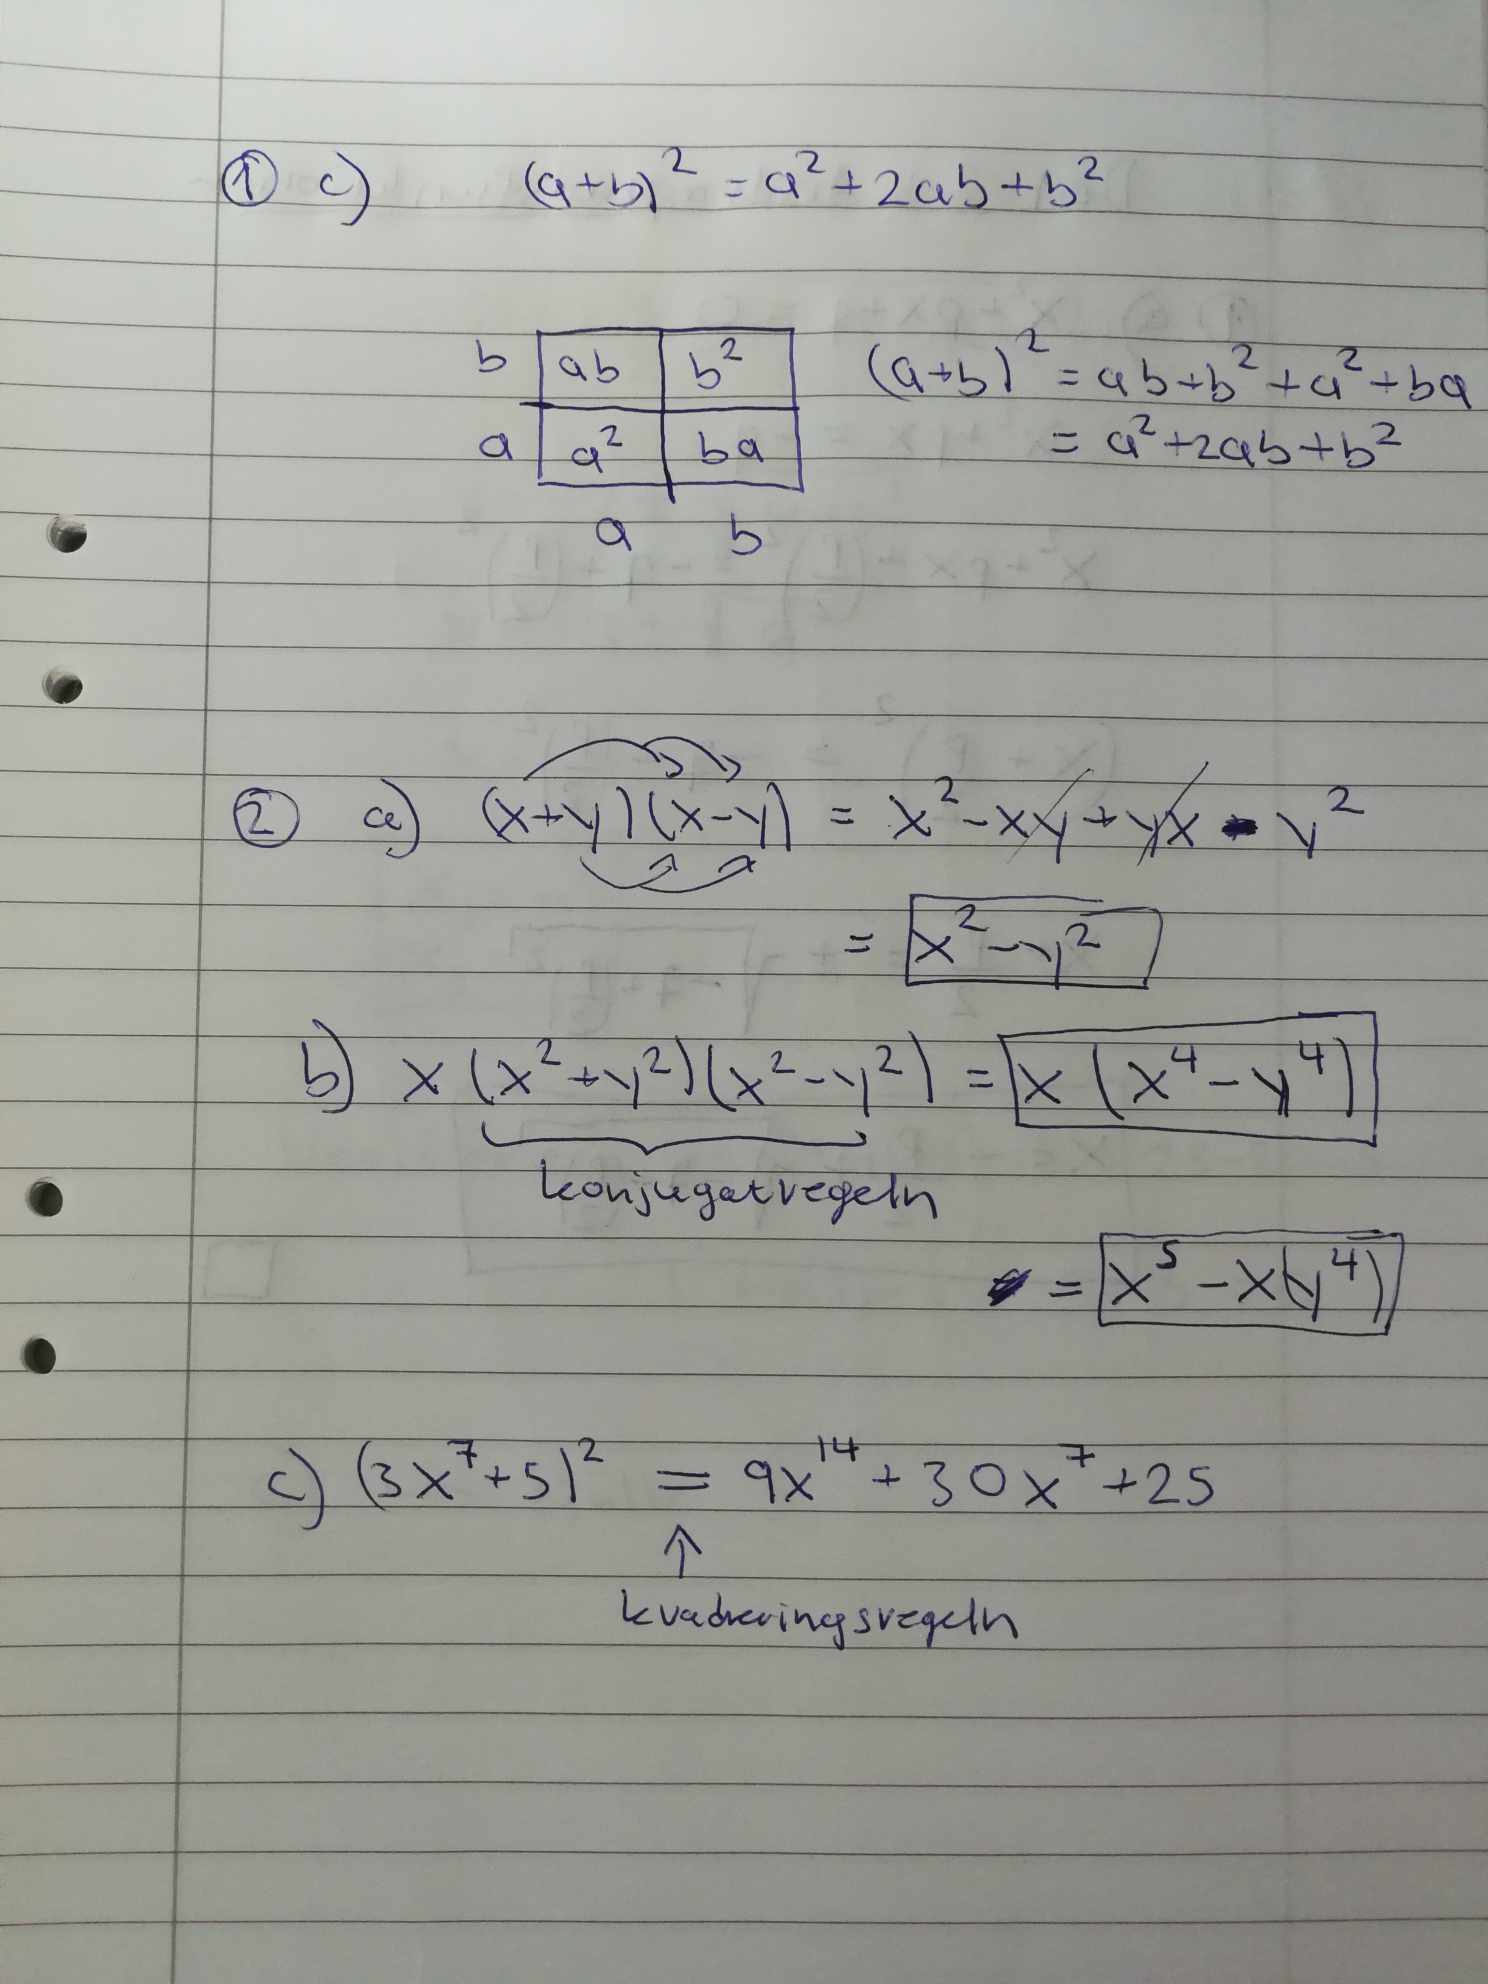 ① c) (a+b)² = a² + 2ab + b²
b ab b² (a+b)² = ab+b²+a²+ba
a a² ba = a²+2ab+b²
a b
② a) (x+y)(x-y) = x² - xy + yx - y²
= x² - y²
b) x(x²+y²)(x²-y²) = x(x⁴-y⁴)
konjugatregeln
= x⁵ - x(y⁴)
c) (3x⁷+5)² = 9x¹⁴ + 30x⁷ + 25
↑
kvadreringsregeln